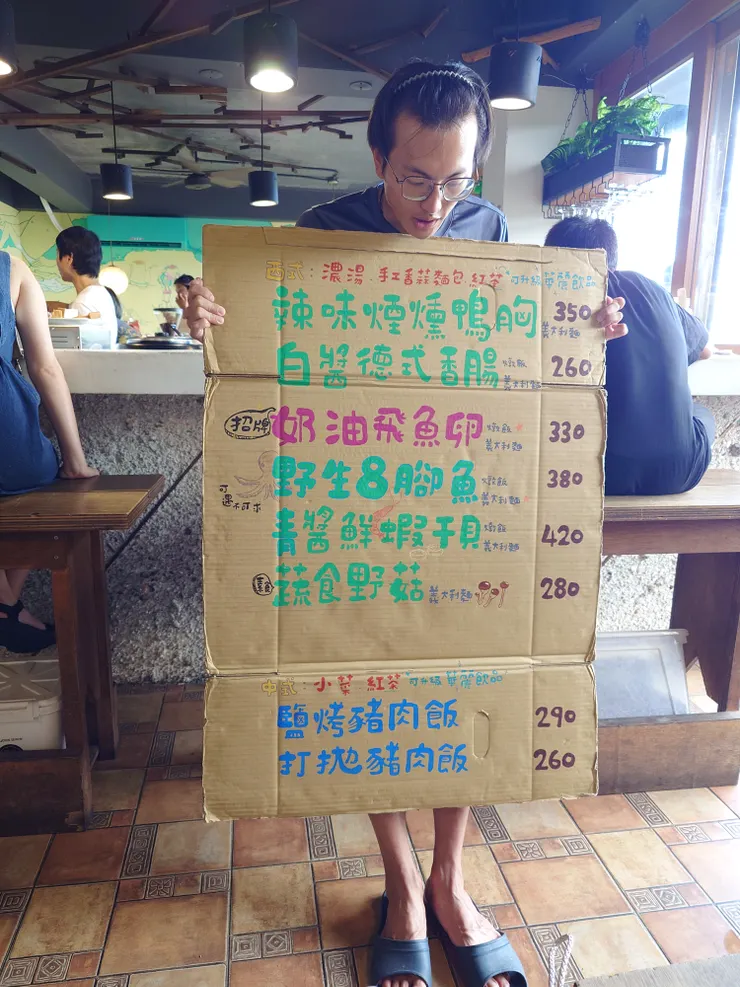 西式：濃湯 手工香蒜麵包 紅茶 "可升級單筒飲品
辣味煙燻鴨胸 義大利麵 350
白醬德式香腸 燉飯 義大利麵 260
招牌 奶油飛魚卵 燉飯 義大利麵 330
可遇不可求 野生8腳魚 燉飯 義大利麵 380
青醬鮮蝦干貝 燉飯 義大利麵 420
素食 蔬食野菇 義大利麵 280
中式：小菜 紅茶 "可升級單筒飲品"
鹽烤豬肉飯 290
打拋豬肉飯 260